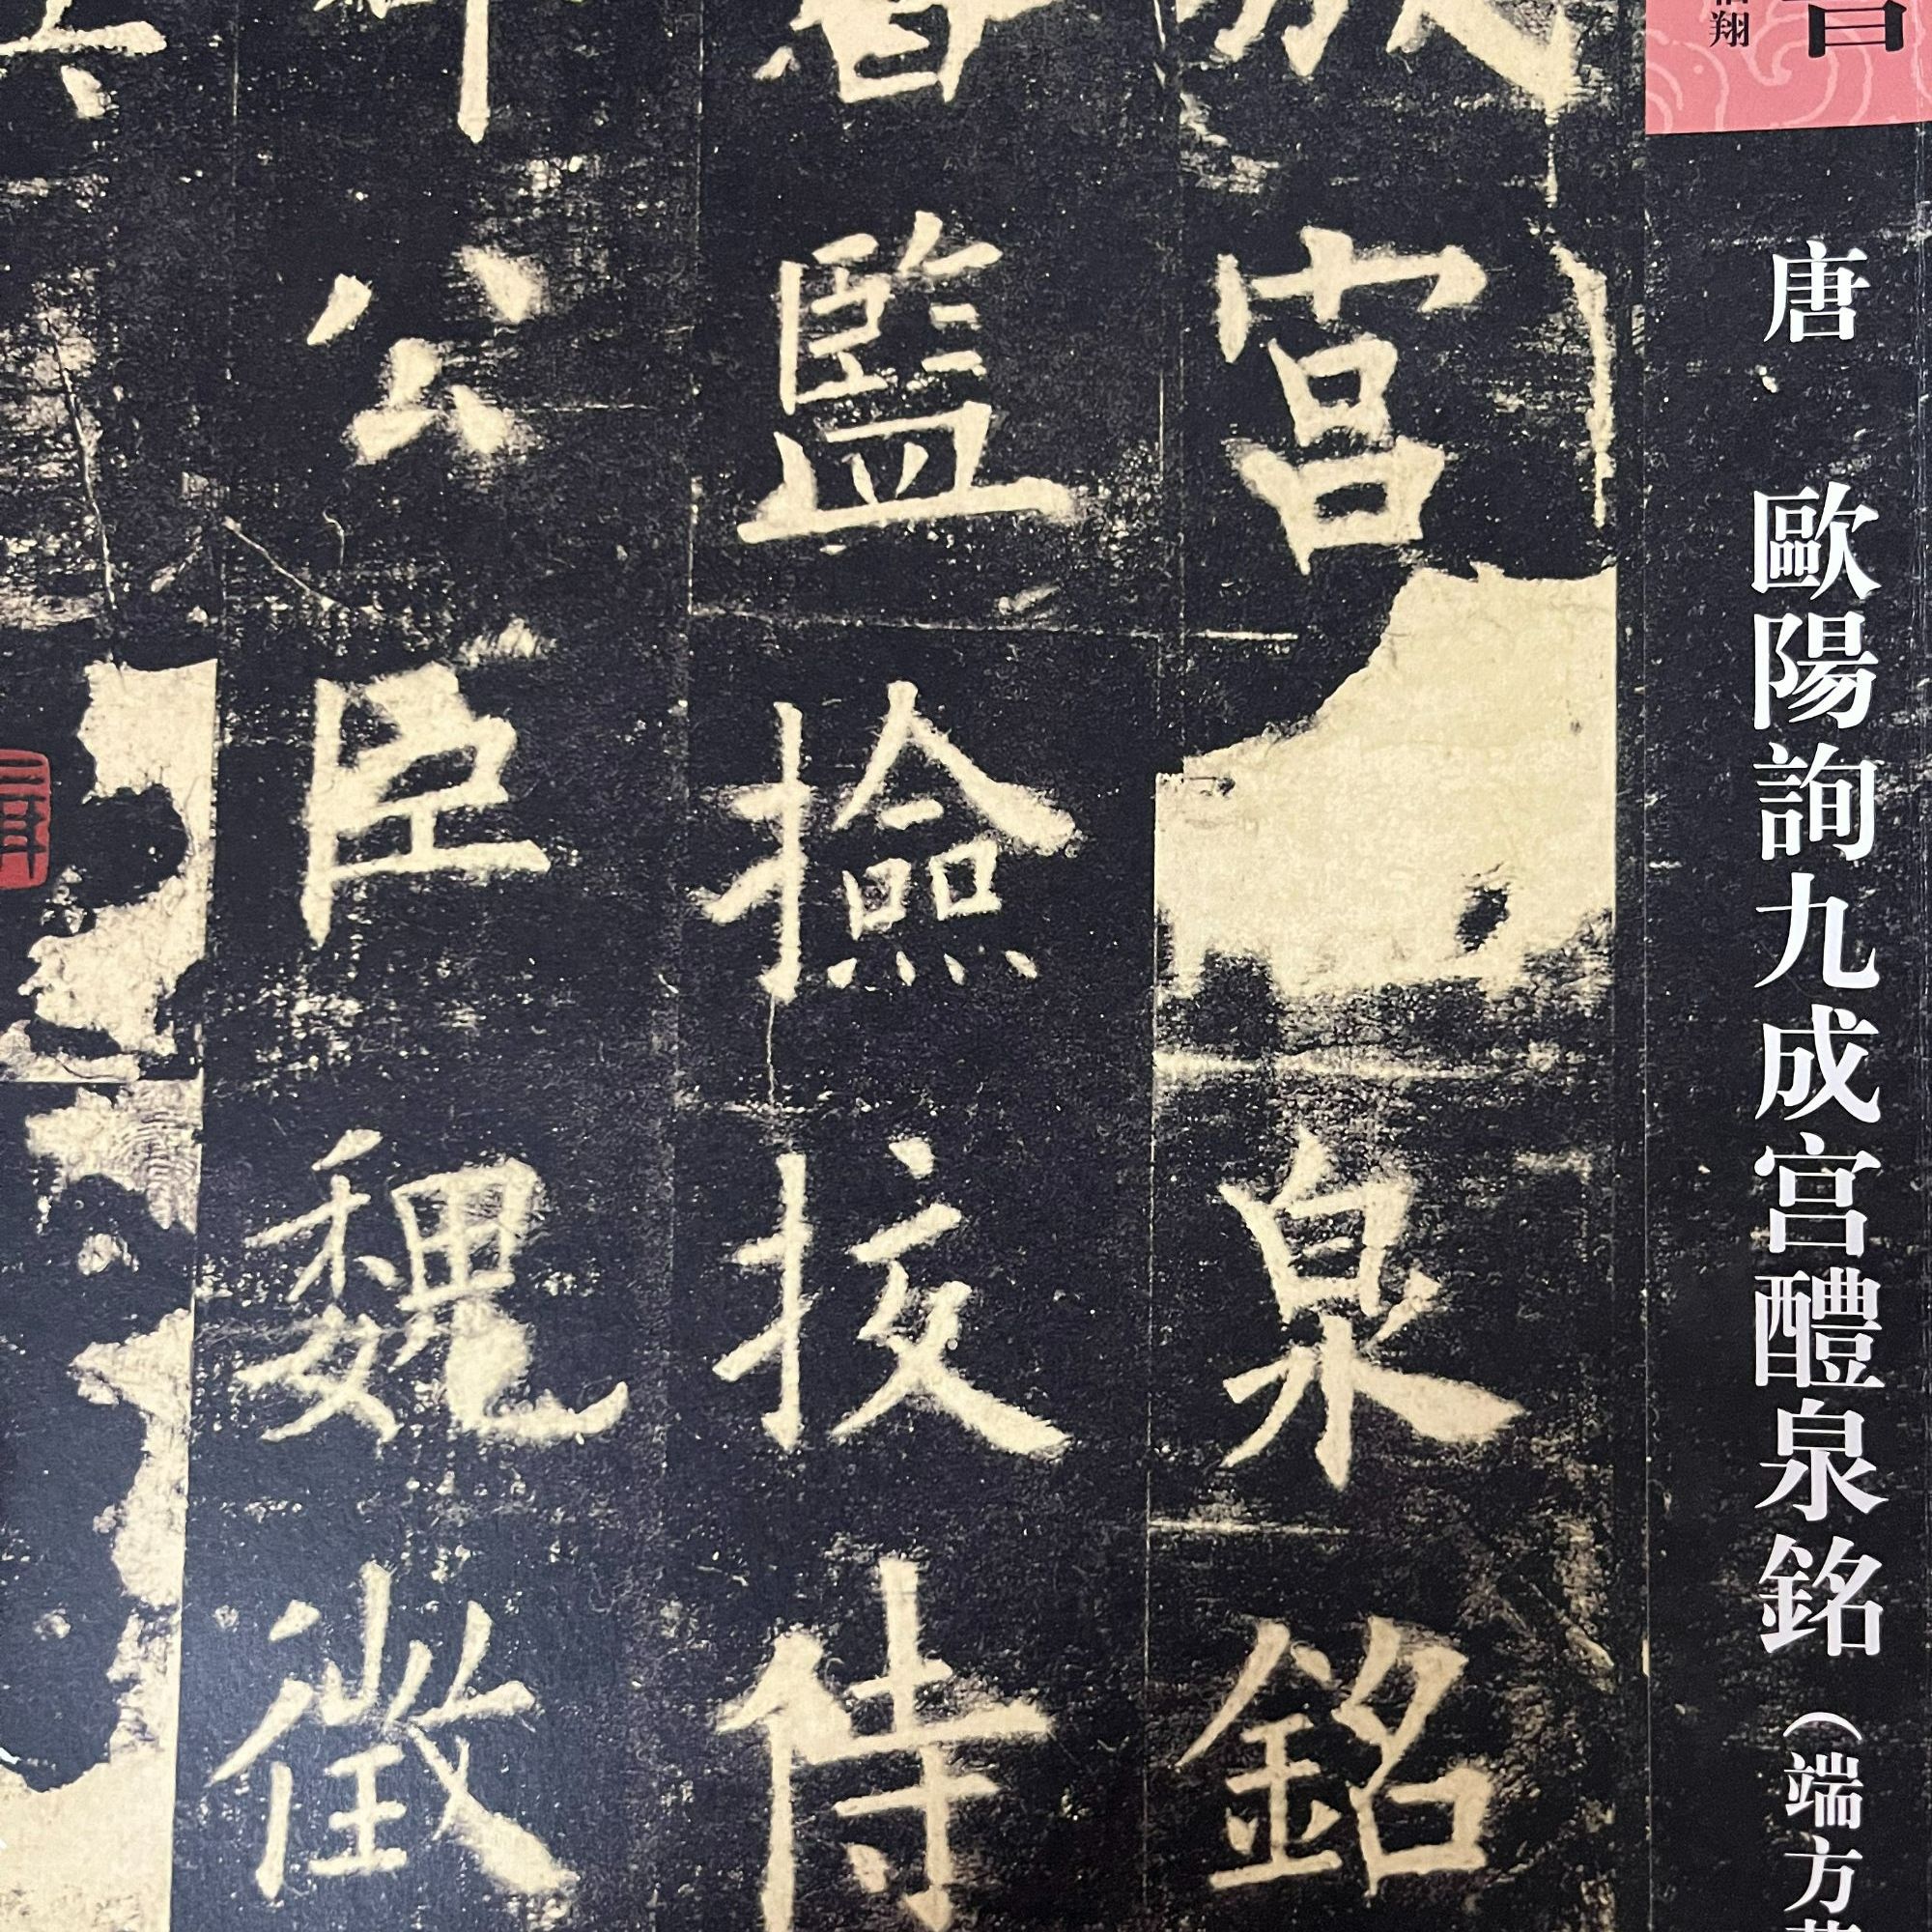 唐 歐陽詢九成宮醴泉銘（端方
成宮
泉銘
監撿挍侍
公臣魏徵